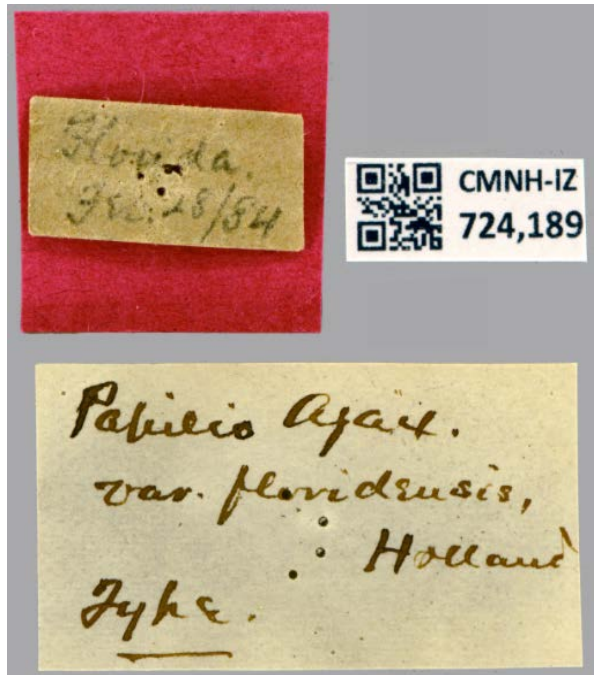 Florida.
Feb. 28/84
CMNH-IZ
724,189
Papilio Ajax.
var. floridensis,
Holland
Type.